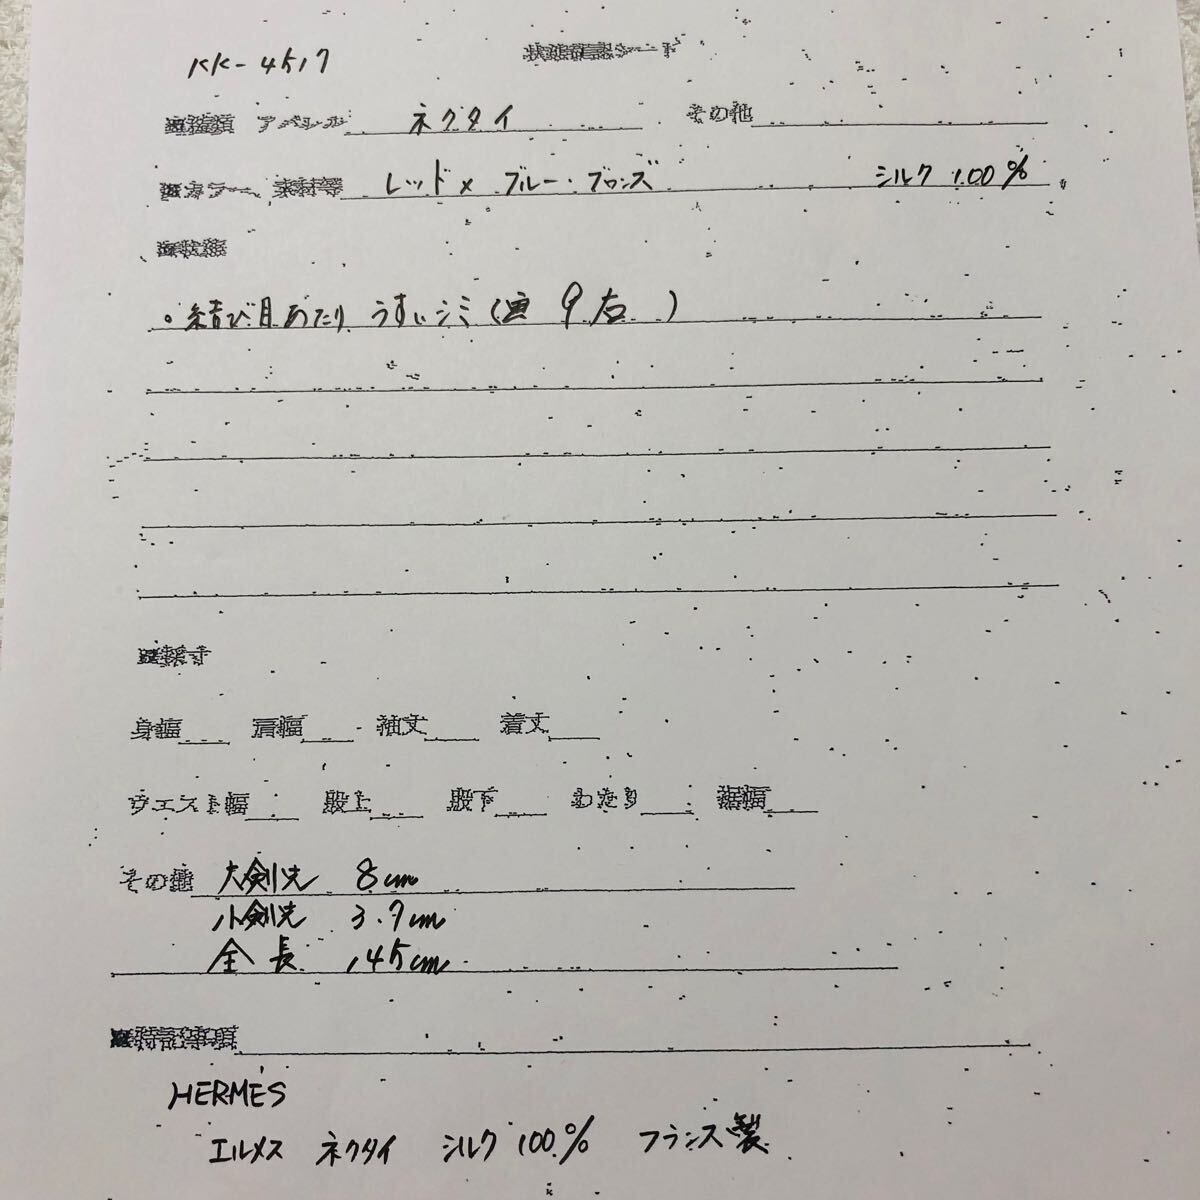 KK-4517
状態確認シート
■種類 アパレル ネクタイ その他
■カラー、素材等 レッド×ブルー・ブロンズ シルク 100%
■状態
。結び目あたり うすいシミ(画 9 右 )
■採寸
身幅 肩幅 袖丈 着丈
ウエスト幅 股上 股下 わたり 裾幅
その他 大剣先 8cm
小剣先 3.7cm
全長 145cm
■特記事項
HERMÈS
エルメス ネクタイ シルク 100% フランス製